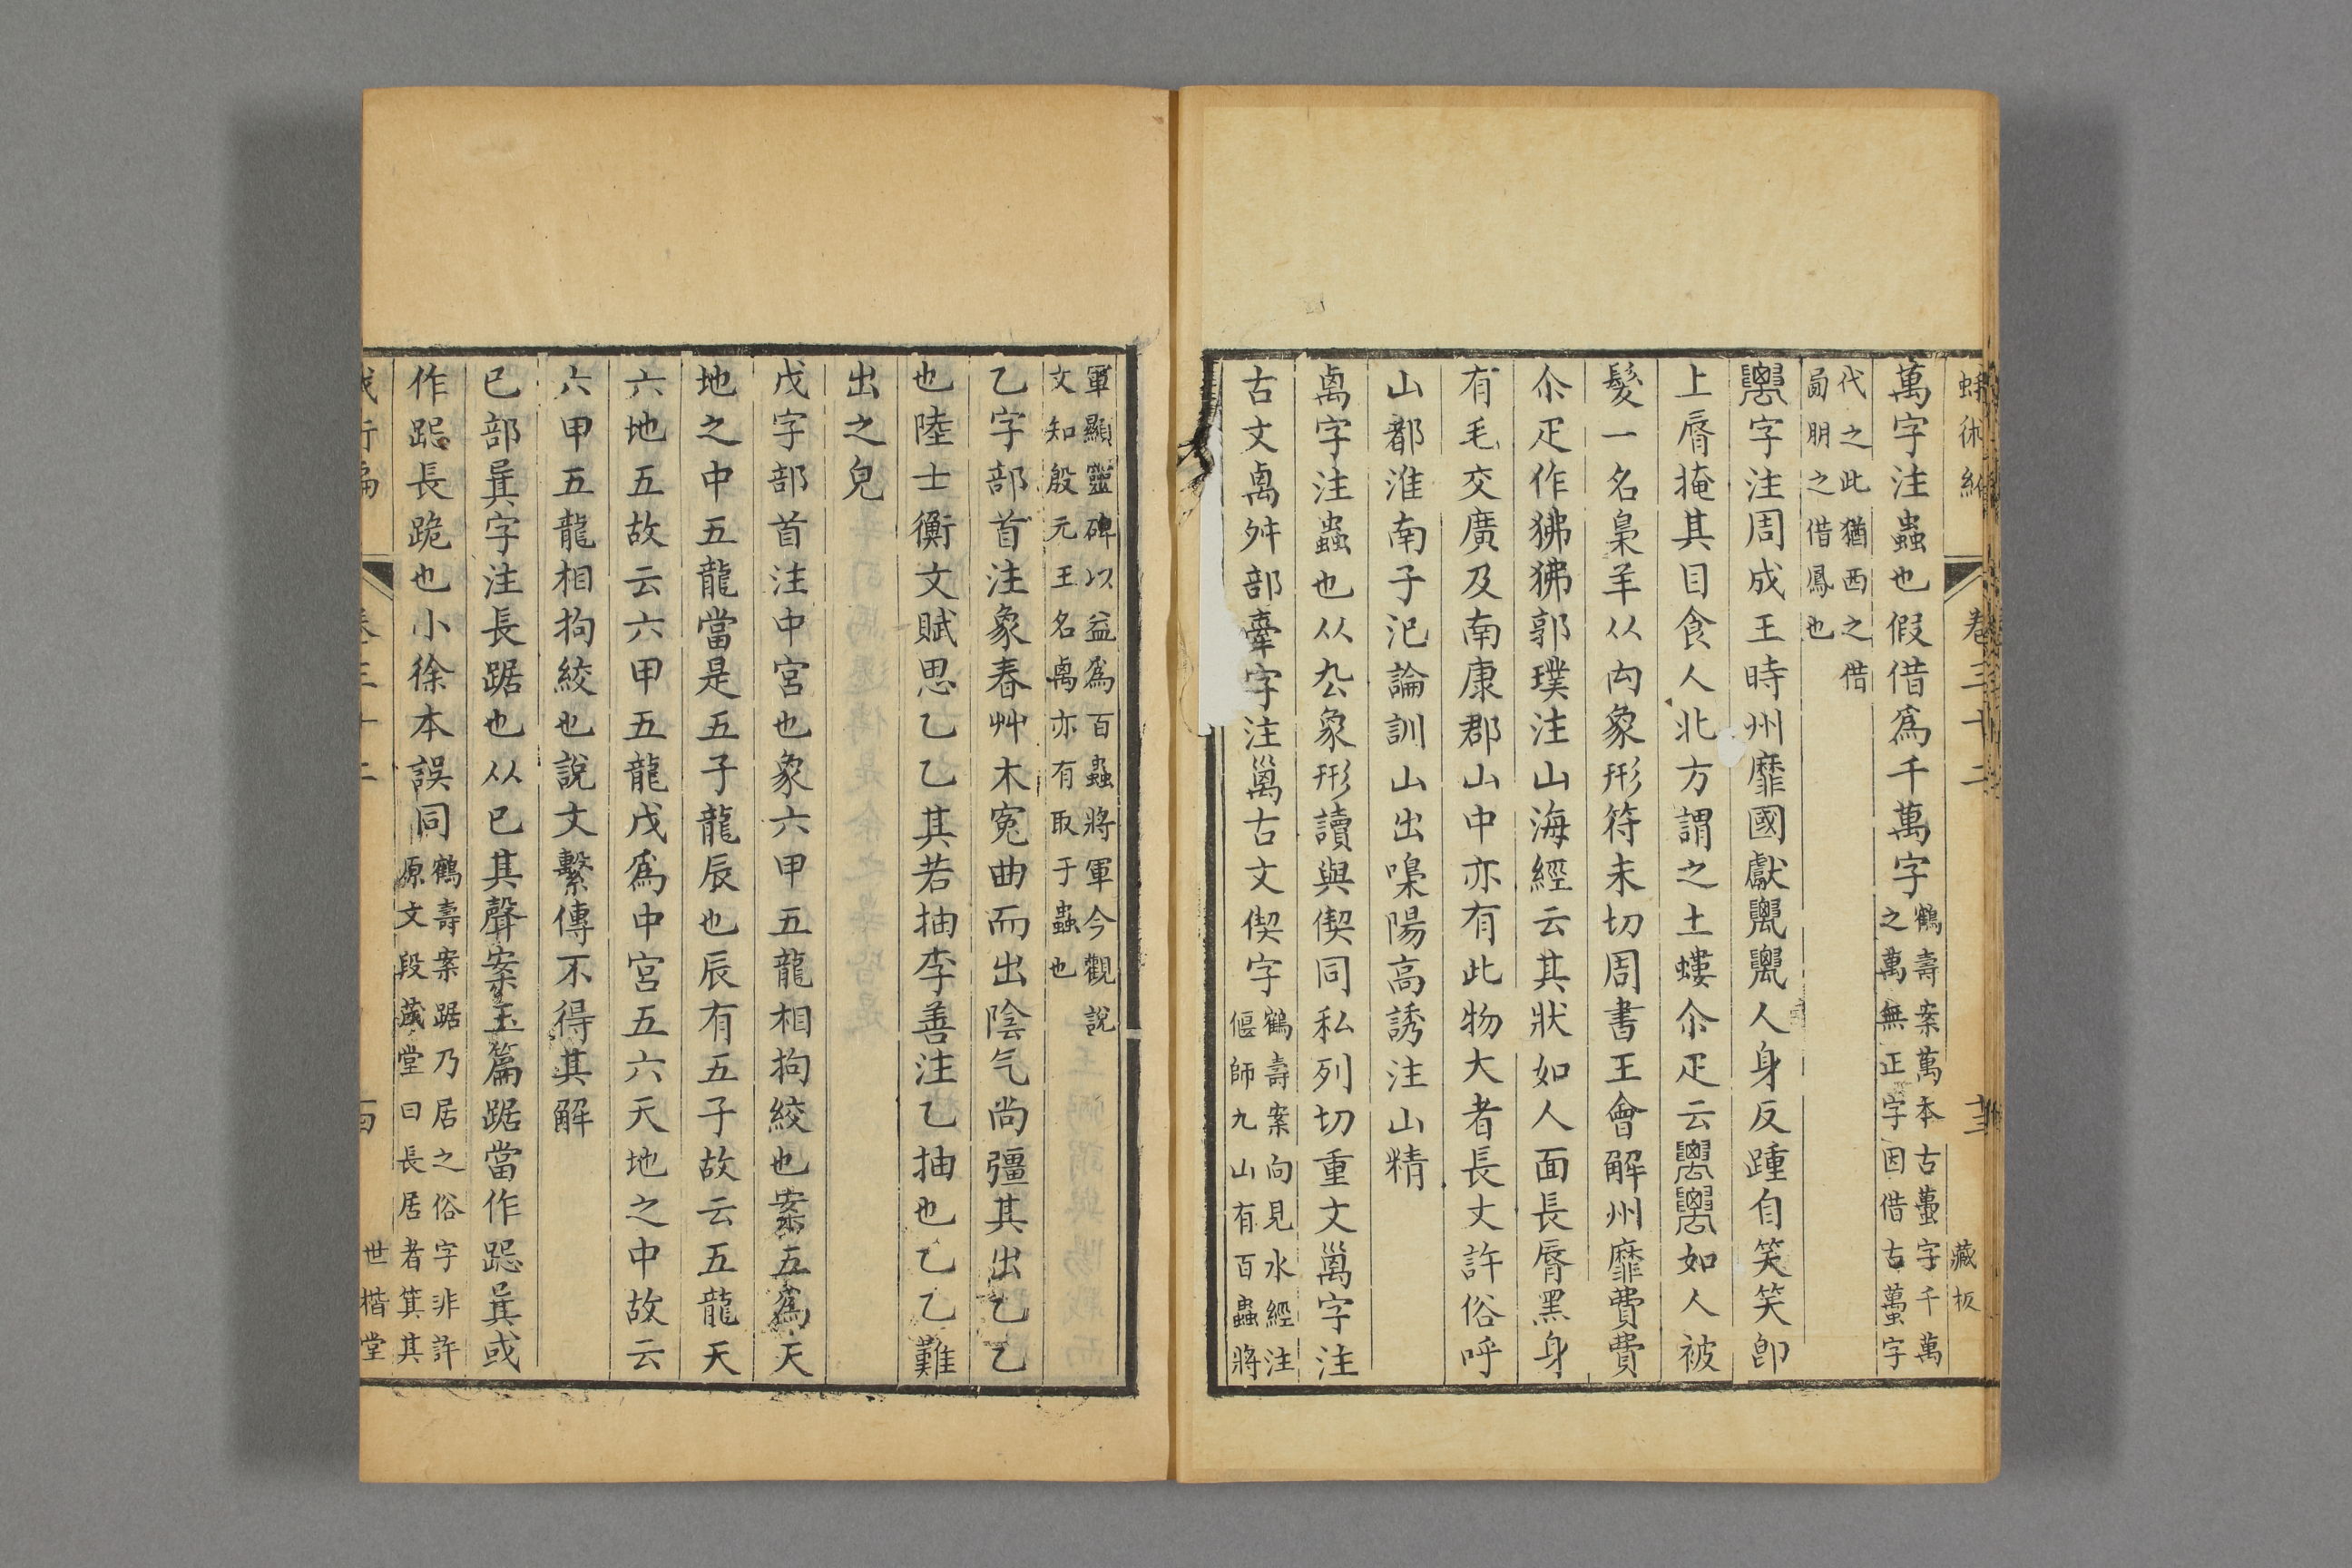 蛾術編 卷三十二 藏板
萬字注蟲也假借爲千萬字鶴壽案萬本古蠆字千萬
之萬無正字因借古蠆字
代之此猶西之借
朙之借鳳也
字注周成王時州靡國獻人身反踵自笑笑卽
上脣掩其目食人北方謂之土螻尒疋云如人被
髮一名梟羊从禸象形符未切周書王會解州靡費費
尒疋作狒狒郭璞注山海經云其狀如人面長脣黑身
有毛交廣及南康郡山中亦有此物大者長丈許俗呼
山都淮南子氾論訓山出嘄陽高誘注山精
禼字注蟲也从厹象形讀與偰同私列切重文𥜿字注
古文禼舛部舝字注𥜿古文偰字鶴壽案向見水經注
偃師九山有百蟲將
軍顯靈碑以益爲百蟲將軍今觀說
文知殷元王名禼亦有取于蟲也
乙字部首注象春艸木冤曲而出陰气尚彊其出乙乙
也陸士衡文賦思乙乙其若抽李善注乙抽也乙乙難
出之皃
戊字部首注中宮也象六甲五龍相拘絞也案五爲天
地之中五龍當是五子龍辰也辰有五子故云五龍天
六地五故云六甲五龍戊爲中宮五六天地之中故云
六甲五龍相拘絞也說文繫傳不得其解
己部㠱字注長踞也从己其聲案玉篇踞當作跽㠱或
作跽長跪也小徐本誤同鶴壽案踞乃居之俗字非許
原文段茂堂曰長居者箕其
世楷堂